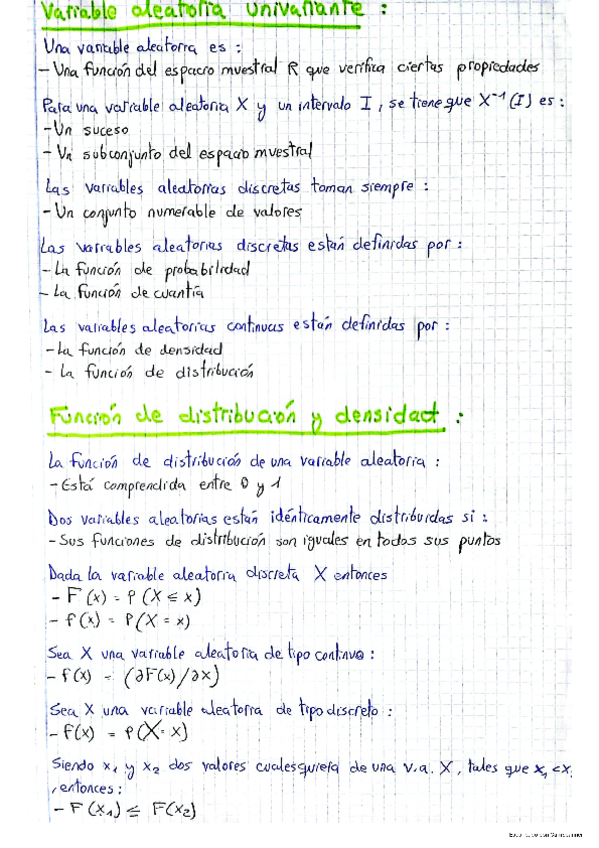 Variable aleatoria univariante :
Una variable aleatoria es :
- Una función del espacio muestral R que verifica ciertas propiedades
Para una variable aleatoria X y un intervalo I, se tiene que X⁻¹(I) es :
- Un suceso
- Un subconjunto del espacio muestral
Las variables aleatorias discretas toman siempre :
- Un conjunto numerable de valores
Las variables aleatorias discretas están definidas por :
- La función de probabilidad
- La función de cuantía
Las variables aleatorias continuas están definidas por :
- La función de densidad
- La función de distribución
Función de distribución y densidad :
La función de distribución de una variable aleatoria :
- Está comprendida entre 0 y 1
Dos variables aleatorias están idénticamente distribuidas si :
- Sus funciones de distribución son iguales en todos sus puntos
Dada la variable aleatoria discreta X entonces
- F(x) = P(X ≤ x)
- f(x) = P(X = x)
Sea X una variable aleatoria de tipo continuo :
- f(x) = (∂F(x)/∂x)
Sea X una variable aleatoria de tipo discreto :
- f(x) = P(X = x)
Siendo x₁ y x₂ dos valores cualesquiera de una v.a. X, tales que x₁ < x
, entonces :
- F(x₁) ≤ F(x₂)